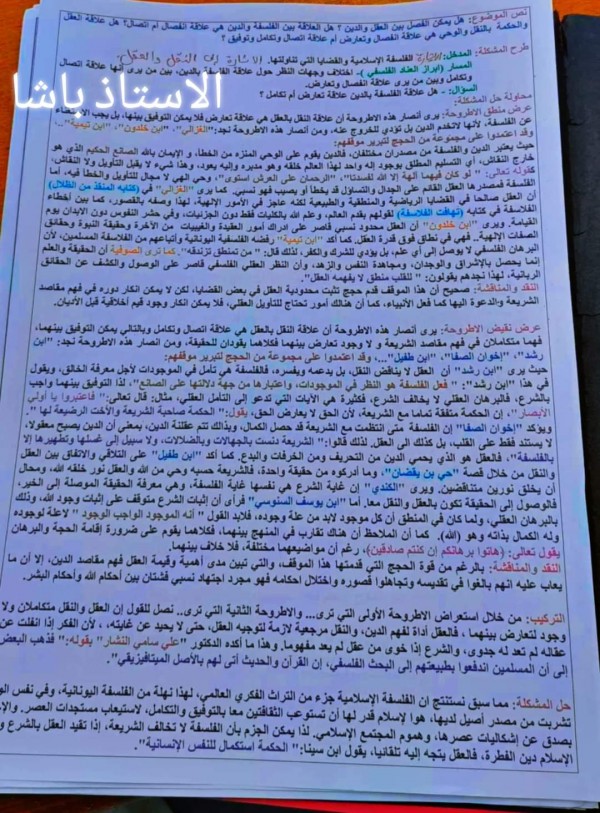 نص الموضوع: هل يمكن الفصل بين العقل والدين ؟ هل العلاقة بين الفلسفة والدين هي علاقة انفصال أم اتصال؟ هل علاقة العقل
والحكمة بالنقل والوحي هي علاقة انفصال وتعارض أم علاقة اتصال وتكامل وتوفيق ؟
طرح المشكلة:
المدخل: الفلسفة الإسلامية والقضايا التي تناولتها. الإشارة إلى النقل والعقل.
المسار (ابراز العناد الفلسفي ).. اختلاف وجهات النظر حول علاقة الفلسفة بالدين، بين من يرى أنها علاقة اتصال
وتكامل وبين من يرى علاقة انفصال وتعارض.
السؤال: - هل علاقة الفلسفة بالدين علاقة تعارض أم تكامل ؟
الاستاذ باشا
محاولة حل المشكلة:
عرض منطق الاطروحة: يرى أنصار هذه الاطروحة أن علاقة النقل بالعقل هي علاقة تعارض فلا يمكن التوفيق بينها، بل يجب الاستغناء
عن الفلسفة، لأنها لاتخدم الدين بل تؤدي للخروج عنه، ومن أنصار هذه الاطروحة نجد:"الغزالي"، "ابن خلدون"، "ابن تيمية"...،
وقد اعتمدوا على مجموعة من الحجج لتبرير موقفهم:
حيث يعتبر الدين والفلسفة من مصدران مختلفان، فالدين يقوم على الوحي المنزه من الخطأ، و الإيمان بالله الصانع الحكيم الذي هو
خارج النقاش، أي التسليم المطلق بوجود إله واحد لهذا العالم خلقه وهو مدبره وإليه يعود، وهذا شيء لا يقبل التأويل ولا النقاش،
كقوله تعالى:" لو كان فيهما آلهة إلا الله لفسدتا"، "الرحمان على العرش استوى"، وحي الهي لا مجال للتأويل والخطأ فيه، أما
الفلسفة فمصدرها العقل القائم على الجدال والتساؤل قد يخطأ أو يصيب فهو نسبي. كما يرى "الغزالي" في (كتابه المنقذ من الظلال)
أن العقل صالحا في القضايا الرياضية والمنطقية والطبيعية لكنه عاجز في الأمور الإلهية، لهذا وصفه بالقصور، كما بين أخطاء
الفلاسفة في كتابه (تهافت الفلاسفة) لقولهم بقدم العالم، وعلم الله بالكليات فقط دون الجزئيات، وفي حشر النفوس دون الابدان يوم
القيامة ويرى "ابن خلدون" أن العقل محدود نسبي قاصر على ادراك أمور العقيدة والغيبيات من الآخرة وحقيقة النبوة وحقائق
الصفات الإلهية.. فهي في نطاق فوق قدرة العقل. كما أكد "ابن تيمية" رفضه الفلسفة اليونانية وأتباعهم من الفلاسفة المسلمين، لأن
البرهان الفلسفي لا يوصل إلى أي علم، بل يؤدي للشرك والكفر، لذلك قال: " من تمنطق تزندقه". كما ترى الصوفية أن الحقيقة والعلم
إنما يحصل بالإشراق والوجدان، ومجاهدة النفس والزهد، وأن النظر العقلي الفلسفي قاصر على الوصول والكشف عن الحقائق
الربانية. لهذا نجدهم يقولون: " للقلب منطق لا يفهمه العقل".
النقد والمناقشة: صحيح أن هذا الموقف قدم حجج تثبت محدودية العقل في بعض القضايا، لكن لا يمكن انكار دوره في فهم مقاصد
الشريعة والدعوة اليها كما فعل الأنبياء، كما أن هنالك أمور تحتاج للتأويل العقلي، فلا يمكن انكار وجود قيم أخلاقية قبل الأديان.
عرض نقيض الاطروحة: يرى أنصار هذه الاطروحة أن علاقة النقل بالعقل هي علاقة اتصال وتكامل وبالتالي يمكن التوفيق بينهما،
فهما متكاملان في فهم مقاصد الشريعة و لا وجود تعارض بينهما فكلاهما يقودان للحقيقة، ومن أنصار هذه الاطروحة نجد: "ابن
رشد"، "إخوان الصفا"، "ابن طفيل"...، وقد اعتمدوا على مجموعة من الحجج لتبرير موقفهم:
حيث يرى "ابن رشد" أن العقل لا يناقض النقل، بل يدعمه ويفسره، فالفلسفة هي تأمل في الموجودات لأجل معرفة الخالق، ويقول
في هذا "ابن رشد": " فعل الفلسفة هو النظر في الموجودات، واعتبارها من جهة دلالتها على الصانع"، لذا التوفيق بينهما واجب
بالشرع، فالبرهان العقلي لا يخالف الشرع، فكثيرة هي الآيات التي تدعو إلى التأمل العقلي، مثال: قال تعالى:" فاعتبروا يا أولي
الأبصار"، إن الحكمة متفقة تماما مع الشريعة، لأن الحق لا يعارض الحق، يقول:" الحكمة صاحبة الشريعة والأخت الرضيعة لها ".
ويؤكد "إخوان الصفا" إن الفلسفة متى انتظمت مع الشريعة قد حصل الكمال، وبذلك تتم عقلنة الدين، بمعنى أن الدين يصبح معقولا،
لا يستند فقط على القلب، بل كذلك الى العقل. لذلك قالوا:" الشريعة دنست بالجهالات وبالضلالات، ولا سبيل إلى غسلها وتطهيرها إلا
بالفلسفة"، فالعقل هو الذي يحمي الدين من التحريف ومن الخرفات والبدع. كما أكد "ابن طفيل" على التلاقي والاتفاق بين العقل
والنقل من خلال قصة "حي بن يقضان"، وما أدركوه من حقيقة واحدة، فالشريعة حسبه وحي من الله والعقل نور خلقه الله، ومحال
أن يخلق نورين متناقضين. ويرى "الكندي" إن غاية الشرع هي نفسها غاية الفلسفة، وهي معرفة الحقيقة الموصلة إلى الخير،
فالوصول إلى الحقيقة تكون بالعقل والنقل معا. أما "ابن يوسف السنوسي" فرأى أن إثبات الشرع متوقف على إثبات وجود الله، وذلك
بالبرهان العقلي، ولما كان في المنطق أن كل موجود لابد من علة وجوده، فلابد القول " أنه الموجود الواجب الوجود " لاعلة لوجوده
وله الكمال بذاته وهو (الله). كما أن الملاحظ أن هناك تقارب في المنهج بينهما، فكلاهما يقوم على ضرورة إقامة الحجة والبرهان
يقول تعالى: (هاتوا برهانكم إن كنتم صادقين)، رغم أن مواضيعهما مختلفة، فلا خلاف بينهما.
النقد والمناقشة: بالرغم من قوة الحجج التي قدمتها هذا الموقف، والتي تبين مدى أهمية وقيمة العقل فهم مقاصد الدين، إلا أن ما
يعاب عليه انهم بالغوا في تقديسه وتجاهلوا قصوره واختلال احكامه فهو مجرد اجتهاد نسبي فشتان بين أحكام الله وأحكام البشر.
التركيب: من خلال استعراض الاطروحة الأولى التي ترى.... والاطروحة الثانية التي ترى.. نصل للقول إن العقل والنقل متكاملان ولا
وجود لتعارض بينهما ، فالعقل أداة لفهم الدين، والنقل مرجعية لازمة لتوجيه العقل، حتى لا يحيد عن غايته، ، لأن الفكر إذا انفلت عن
عقاله لم تعد له جدوى، والشرع إذا خوى من عقل لم يعد مفهوما. وهذا ما أكده الدكتور "علي سامي النشار" بقوله:" فذهب البعض
إلى أن المسلمين اندفعوا بطبيعتهم إلى البحث الفلسفي، إن القرآن والحديث أتى لهم بالأصل الميتافيزيقي".
حل المشكلة: مما سبق نستنتج ان الفلسفة الإسلامية جزء من التراث الفكري العالمي، لهذا نهلة من الفلسفة اليونانية، وفي نفس
تشربت من مصدر أصيل لديها، هوا لإسلام قدر لها أن تستوعب الثقافتين معا بالتوفيق والتكامل، لاستيعاب مستجدات العصر.
بصدق عن إشكاليات عصرها، وهموم المجتمع الإسلامي. لذا يمكن الجزم بأن الفلسفة لا تخالف الشريعة، إذا تقيد العقل بالشرع
الإسلام دين الفطرة، فالعقل يتجه إليه تلقائيا، يقول ابن سينا:" الحكمة استكمال للنفس الإنسانية".